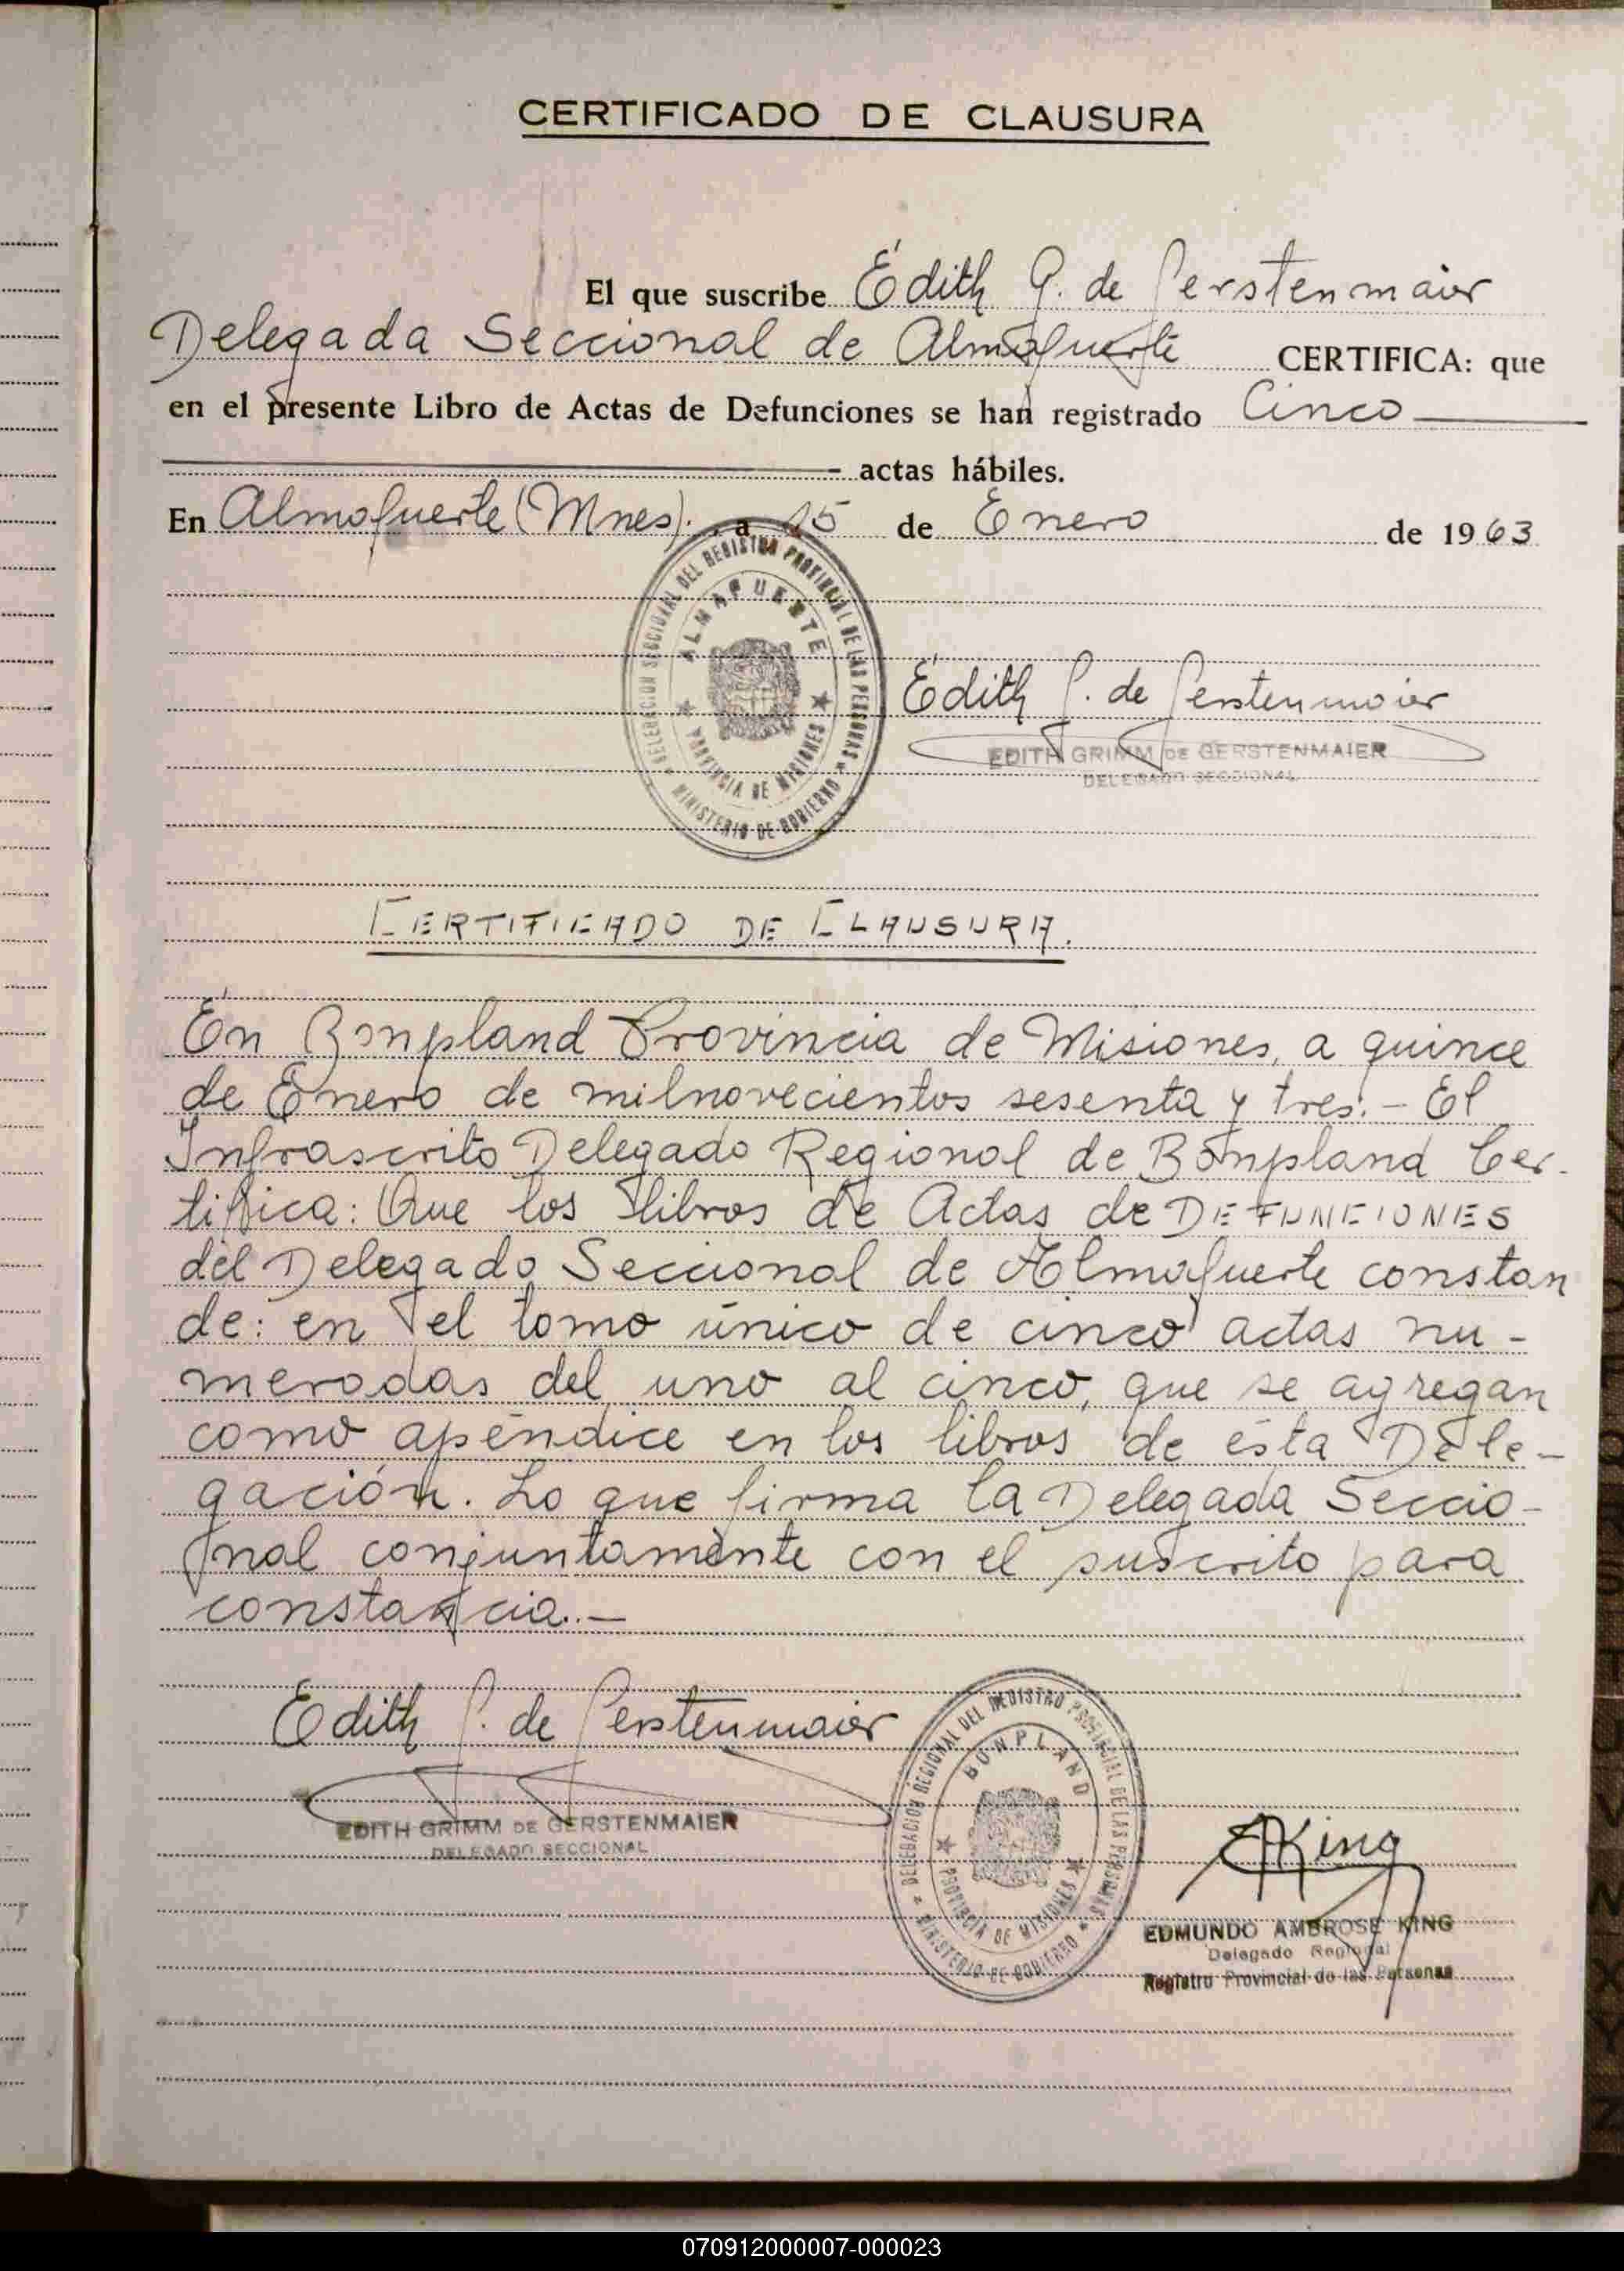 CERTIFICADO DE CLAUSURA
El que suscribe Edith G. de Gerstenmaier
Delegada Seccional de Almafuerte CERTIFICA: que
en el presente Libro de Actas de Defunciones se han registrado Cinco
actas hábiles.
En Almafuerte (Mnes). a 15 de Enero de 1963
DELEGACION SECCIONAL DEL REGISTRO PROVINCIAL DE LAS PERSONAS
ALMAFUERTE
PROVINCIA DE MISIONES
MINISTERIO DE GOBIERNO
Edith G. de Gerstenmaier
EDITH GRIMM DE GERSTENMAIER
DELEGADO SECCIONAL
CERTIFICADO DE CLAUSURA.
En Bonpland Provincia de Misiones, a quince
de Enero de milnovecientos sesenta y tres.- El
Infrascrito Delegado Regional de Bonpland Cer-
tifica: Que los libros de Actas de DEFUNCIONES
del Delegado Seccional de Almafuerte constan
de: en el tomo único de cinco actas nu-
meradas del uno al cinco, que se agregan
como apéndice en los libros de ésta Dele-
gación. Lo que firma la Delegada Seccio-
nal conjuntamente con el suscrito para
constancia.-
Edith G. de Gerstenmaier
EDITH GRIMM DE GERSTENMAIER
DELEGADO SECCIONAL
DELEGACION REGIONAL DEL REGISTRO PROVINCIAL DE LAS PERSONAS
BONPLAND
PROVINCIA DE MISIONES
MINISTERIO DE GOBIERNO
EAKing
EDMUNDO AMBROSE KING
Delegado Regional
Registro Provincial de las Personas
070912000007-000023